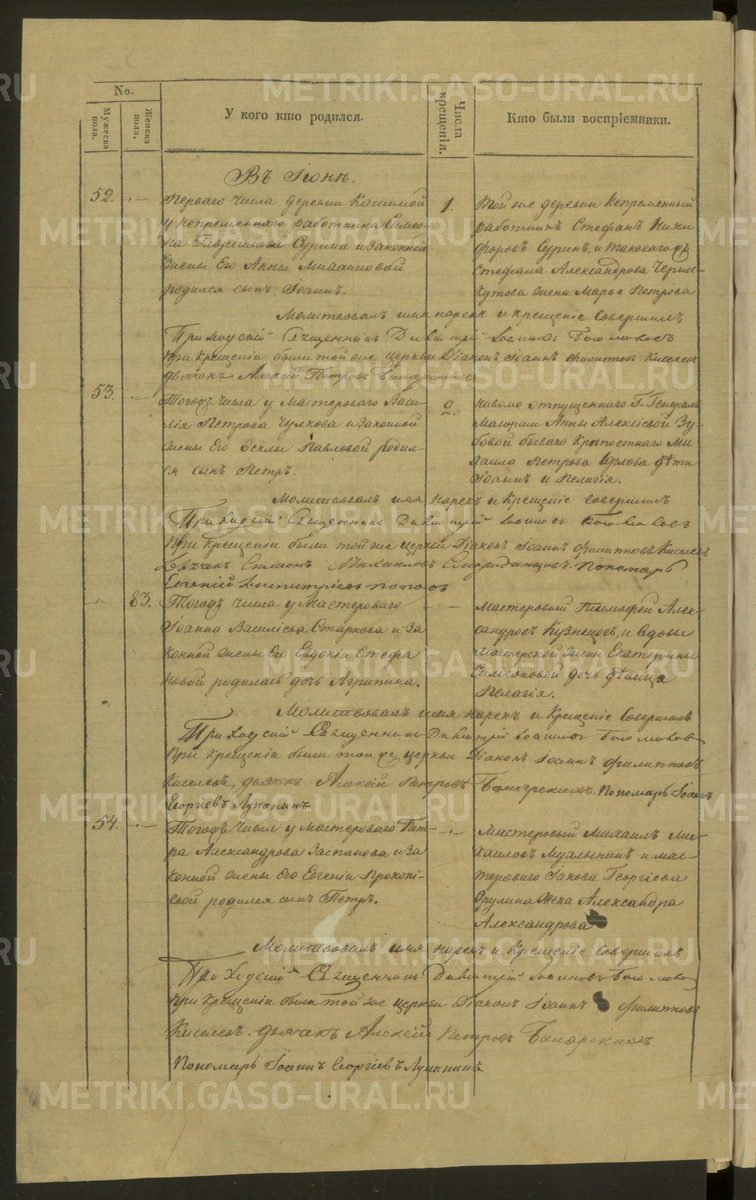 No.
Мужеска пола.
Женска пола.
У кого кто родился.
Числа крещенія.
Кто были воспріемники.
Въ Іюнѣ.
52.
Перваго числа деревни Кашиной
у непременнаго работника Симео
на Гаврилова Сурина и законной
жены Его Анны
родился сынъ Іоаннъ.
1.
Той же деревни Непременный
работникъ Стефанъ Ники
форовъ Суринъ, и таковаго
Стефана Александрова Черно
кутова жена Марѳа Петрова
Молитвовалъ имя нарекъ и крещеніе совершилъ,
Приходскій Священникъ Димитрій Іоанновъ
При крещеніи были той же церкви Діаконъ Іоаннъ Филиповъ Киселев
дьячекъ Алексій Петровъ
53.
Тогожъ числа у Мастероваго Васи
лія Петрова Чулкова и законной
жены Его Ѳеклы Павловой родил
ся сынъ Петръ.
2.
отпущеннаго Г. Генералъ
Маіорши Анны Алексіевой Зу
бовой бывшаго Крѣпостнаго Ми
хаила Петрова Орлова дѣти
Іоаннъ и Пелагія.
Молитвовалъ имя нарекъ и крещеніе совершилъ
Приходскій Священникъ Димитрій
При крещеніи были той же церкви Діаконъ Іоаннъ Филиповъ Киселевъ
Дьячекъ Симеонъ Михаиловъ Пономарь
Евгеній Димитріевъ Поповъ
83.
Тогожъ числа у Мастероваго
Іоанна Василіева Старкова и за
конной жены Его Евдокіи Стефа
новой родилась дочь Агрипина.
Мастеровый Тимофей Алек
сандровъ Кузнецовъ, и вдовы
Мастерской жены Екатерины
Симеоновой дочь дѣвица
Пелагія.
Молитвовалъ имя нарекъ и Крещеніе Совершилъ
Приходскій Священникъ Димитрій Іоанновъ
При крещеніи были той же церкви Діаконъ Іоаннъ Филиповъ
Киселевъ, дьячекъ Алексій Петровъ Пономарь Іоаннъ
Георгіевъ Лупанинъ
54.
Тогожъ числа у Мастероваго Пет
ра Александрова Заспанова и за
конной жены Его Евгеніи Прокопі
евой родился сынъ Петръ.
Мастеровый Михаилъ Ми
хаиловъ и мас
тероваго Іакова Георгіева
жена Александра
Александрова
Молитвовалъ имя нарекъ и Крещеніе Совершилъ
Приходскій Священникъ Димитрій Іоанновъ
При Крещеніи были той же церкви Діаконъ Іоаннъ Филиповъ
Киселевъ. дьячекъ Алексій Петровъ
Пономарь Іоаннъ Георгіевъ Лупанинъ
METRIKI.GASO-URAL.RU